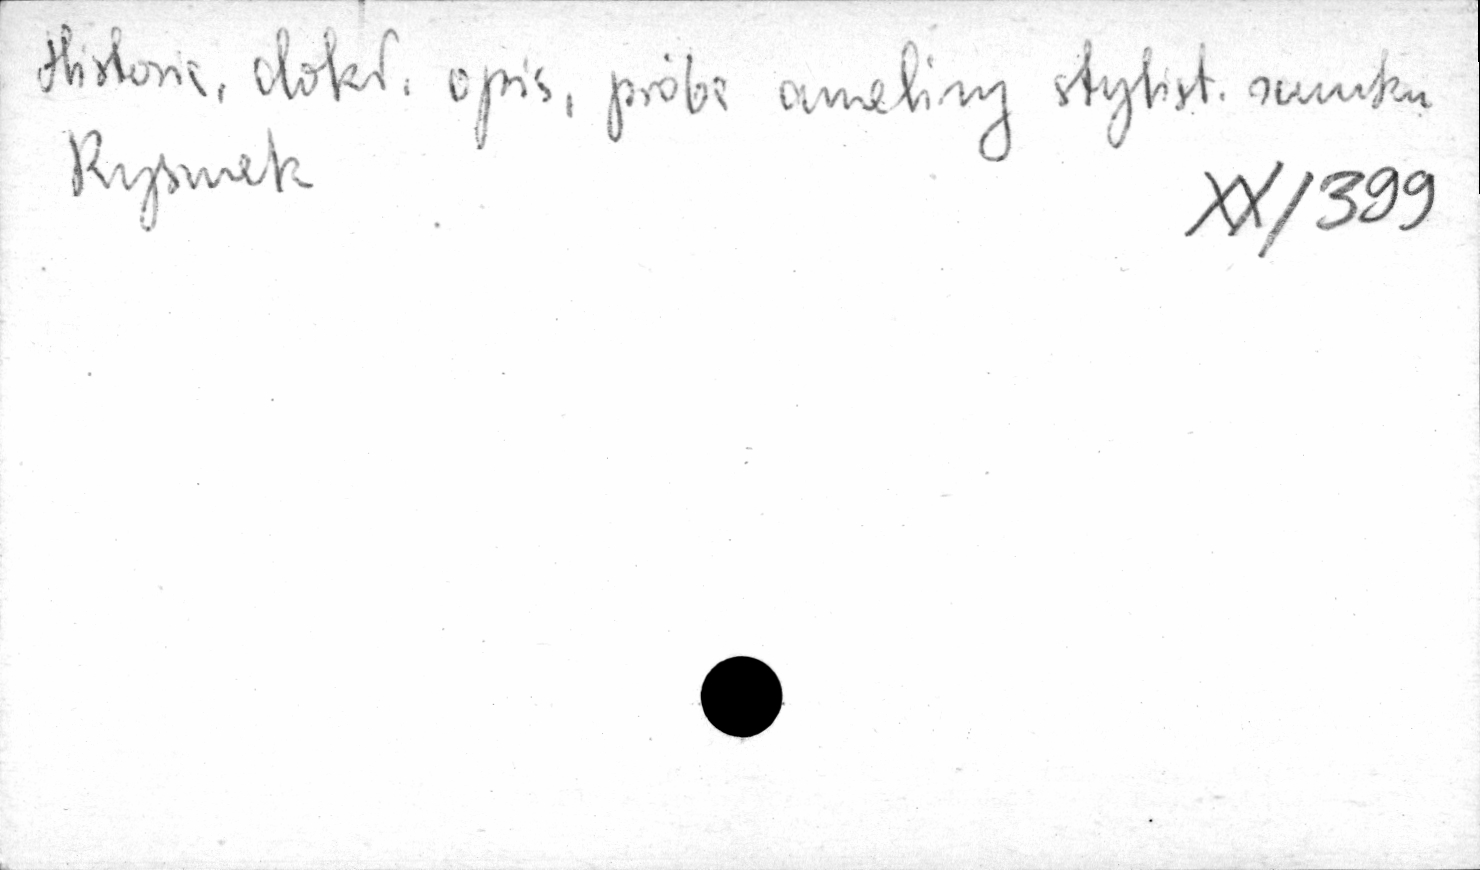 Historia, dokł. opis, próba analizy stylist. zamku
Rysunek
XX/399